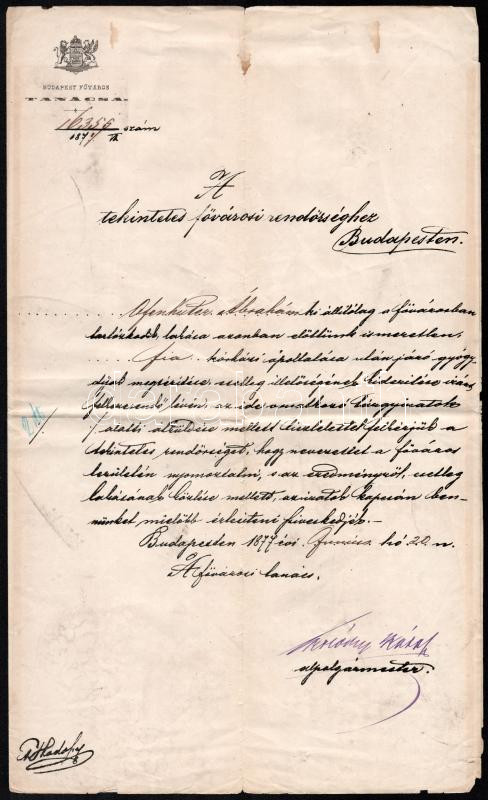 BUDAPEST FŐVÁROS
TANÁCSA.
16356 szám
1877
A
tekintetes fővárosi rendőrséghez
Budapesten.
Ábrahám ki állitólag a fővárosban
tartózkodik, lakása azonban előttünk ismeretlen,
fia kórházi ápoltatása után járó gyógy-
dijak megtéritése, esetleg illetőségének kiderítése iránt
felkeresendő lévén, az ide vonatkozó
alatti átküldése mellett tisztelettel felkérjük a
tekintetes rendőrséget, hogy nevezettet a főváros
területén nyomoztatni, s az eredményről, esetleg
lakásának közlése mellett, az iratok kapcsán ben-
nünket mielőbb értesíteni sziveskedjék.–
Budapesten 1877 évi hó 22 n.
A fővárosi tanács.
alpolgármester.